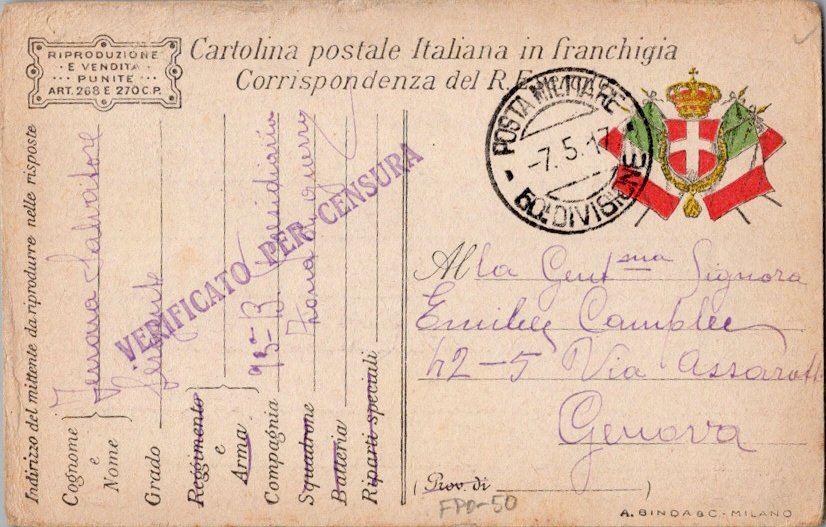 RIPRODUZIONE
E VENDITA
PUNITE
ART. 268 E 270 C.P.
Cartolina postale Italiana in franchigia
Corrispondenza del R.
POSTA MILITARE
-7.5.17
50ª DIVISIONE
Indirizzo del mittente da riprodurre nelle risposte
Cognome
e
Nome
Salvatore
Grado
Reggimento
e
Arma
Compagnia
93ª B Presidiaria
Squadrone
Zona di guerra
Batteria
Riparti speciali
VERIFICATO PER CENSURA
Alla Gentma Signora
Emilia
42-5 Via Assarotti
Genova
(Prov. di
FPO-50
A. BINDA & C. - MILANO